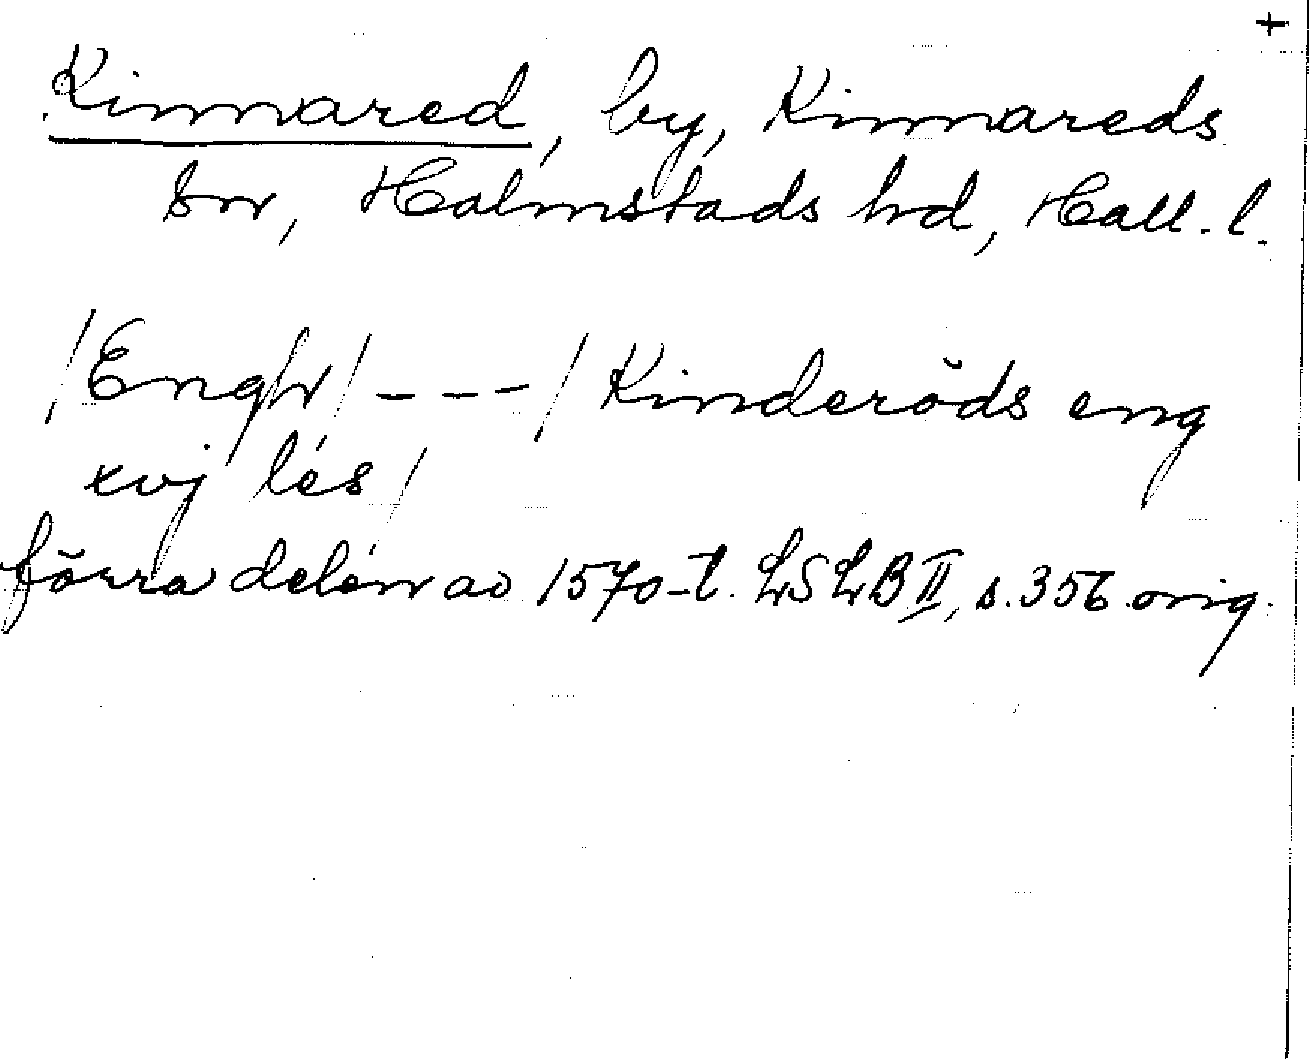 +
Kinnared, by, Kinnareds
sn, Halmstads hd, Hall. l.
/Engh/ --- / Kinderöds eng
xvj les/
förra delen av 1570-t. LSLB II, s. 356 orig.